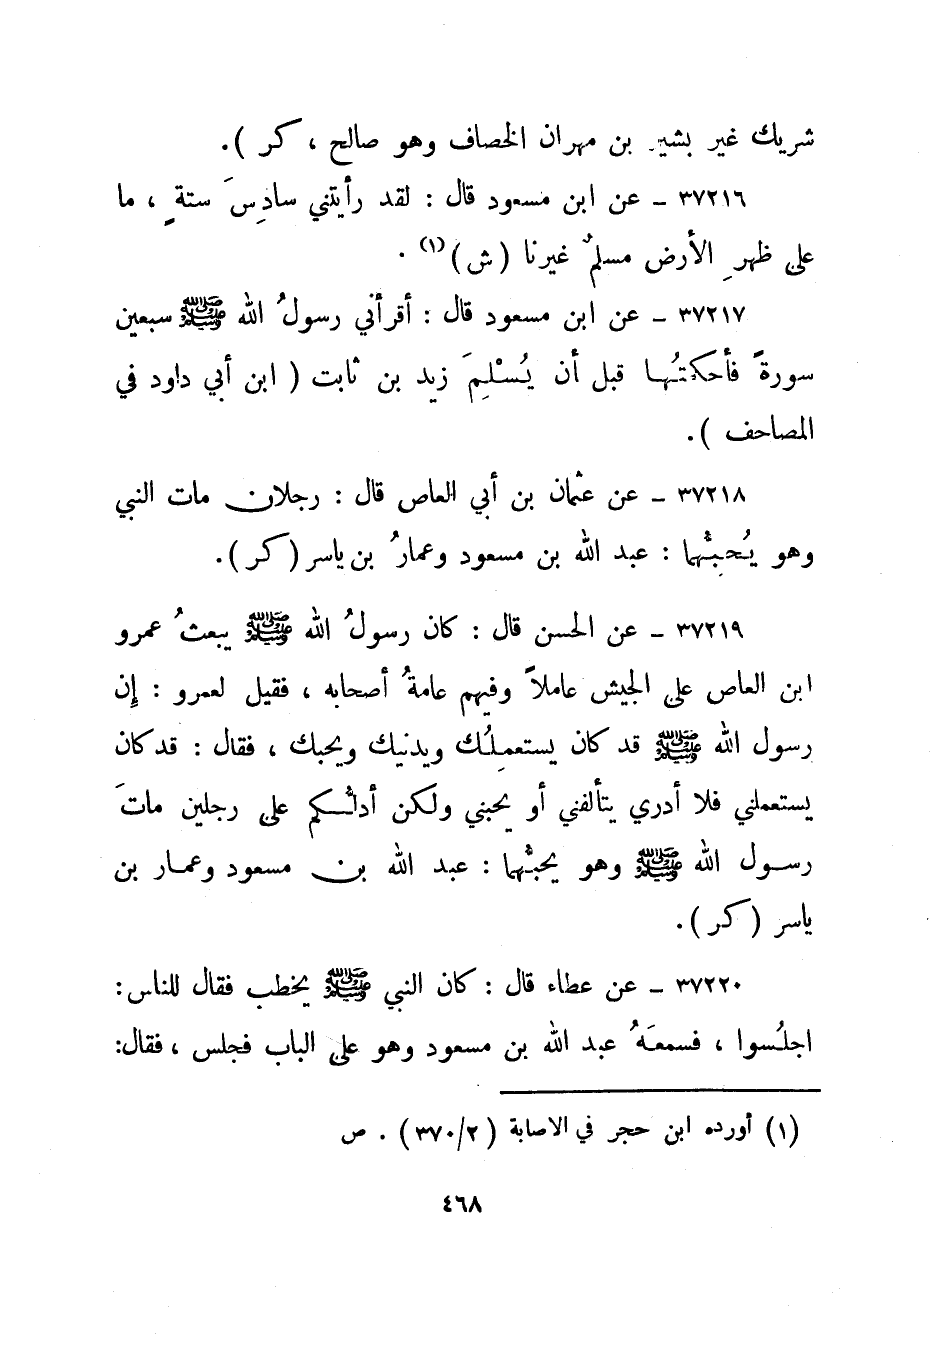 شريك غير بشير بن مهران الخصاف وهو صالح ، كر ).
٣٧٢١٦ ـ عن ابن مسعود قال : لقد رأيتني سادِسَ ستةٍ ، ما
على ظهرِ الأرض مسلمٌ غيرنا ( ش )(١) .
٣٧٢١٧ ـ عن ابن مسعود قال : أقرأني رسولُ الله ﷺ سبعين
سورةً فأحكمتُها قبل أن يُسْلِمَ زيد بن ثابت ( ابن أبي داود في
المصاحف ).
٣٧٢١٨ ـ عن عثمان بن أبي العاص قال : رجلان مات النبي
وهو يُحِبُّهما : عبد الله بن مسعود وعمارُ بن ياسر ( كر ).
٣٧٢١٩ ـ عن الحسن قال : كان رسولُ الله ﷺ يبعثُ عمرو
ابن العاص على الجيش عاملاً وفيهم عامةُ أصحابه ، فقيل لعمرو : إن
رسول الله ﷺ قد كان يستعمِلُك ويدنيك ويحبك ، فقال : قد كان
يستعملني فلا أدري يتألفني أو يحبني ولكن أدلُّكم على رجلين ماتَ
رسول الله ﷺ وهو يحبُّهما : عبد الله بن مسعود وعمار بن
ياسر ( كر ).
٣٧٢٢٠ ـ عن عطاء قال : كان النبي ﷺ يخطب فقال للناس :
اجلُسوا ، فسمعَهُ عبد الله بن مسعود وهو على الباب فجلس ، فقال :
(١) أورده ابن حجر في الاصابة ( ٣٧٠/٢ ) . ص
٤٦٨